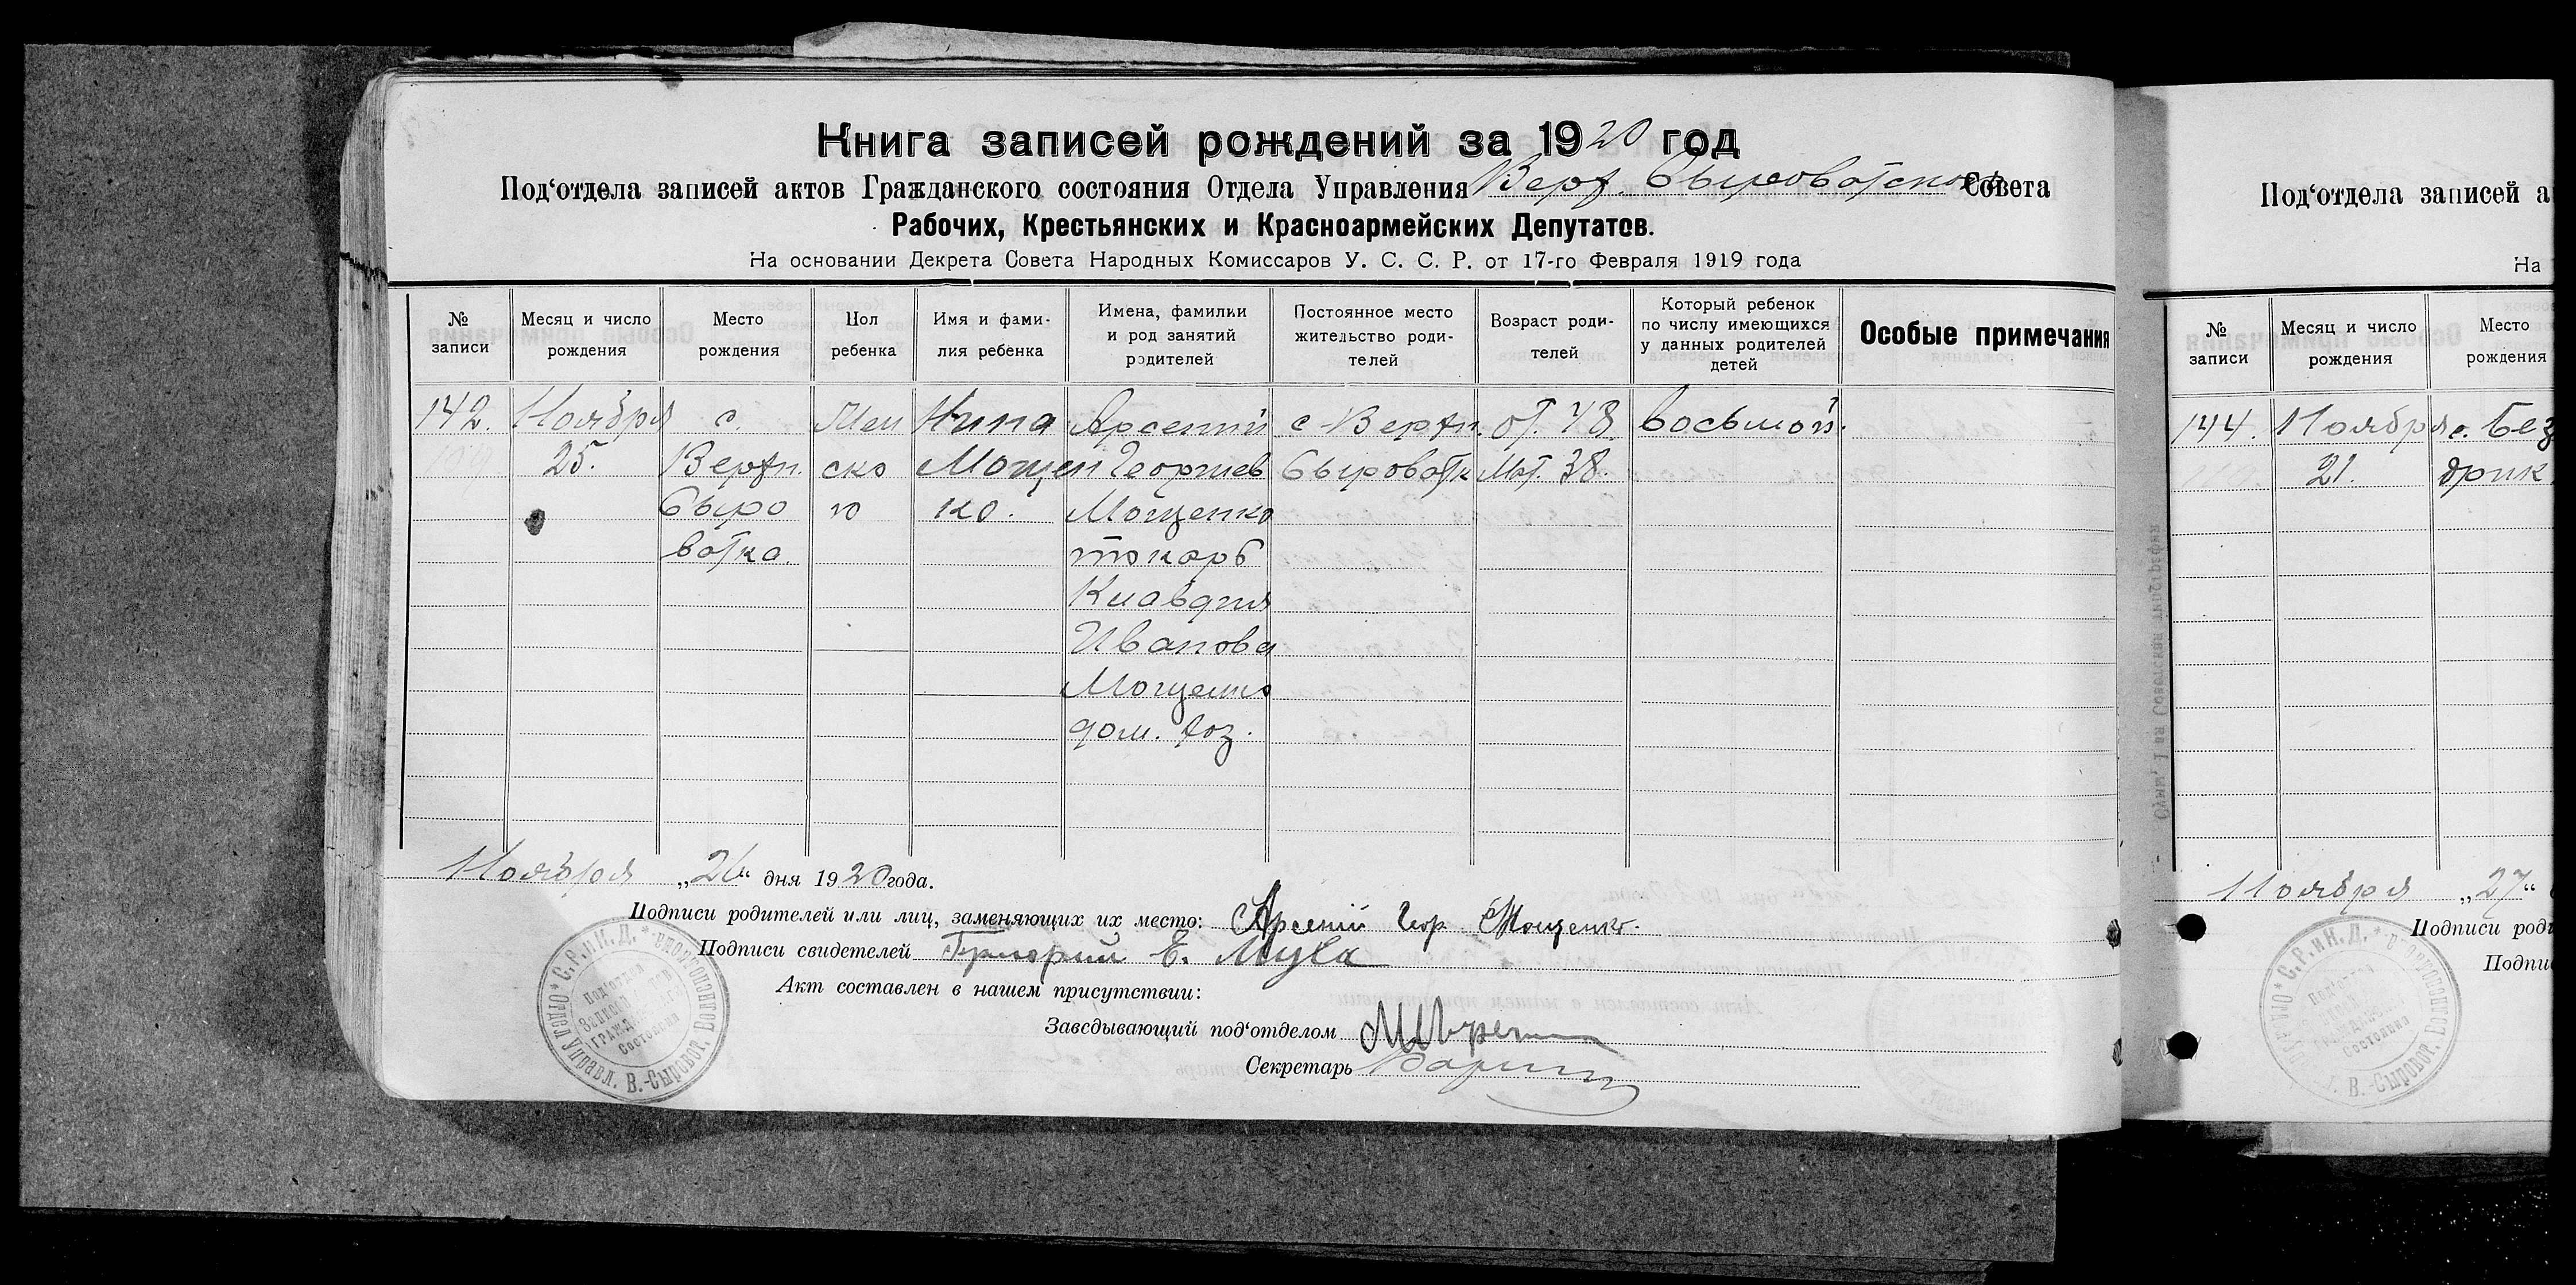 Книга записей рождений за 1920 год
Под'отдела записей актов Гражданского состояния Отдела Управления Верх. Сыроватского Совета
Рабочих, Крестьянских и Красноармейских Депутатов.
На основании Декрета Совета Народных Комиссаров У. С. С. Р. от 17-го Февраля 1919 года
№ записи
Месяц и число рождения
Место рождения
Пол ребенка
Имя и фами-
лия ребенка
Имена, фамилии
и род занятий
родителей
Постоянное место
жительство роди-
телей
Возраст роди-
телей
Который ребенок
по числу имеющихся
у данных родителей
детей
Особые примечания
142.
Ноября
25.
с.
Верхн.
Сыро
ватка.
Жен
ско
го
Нина
Мощен
ко.
Арсений
Георгиев
Мощенко
токарь
Клавдия
Иванова
Мощенко
дом. хоз.
с. Верхн.
Сыроватк
от. 48
Мат. 38.
восьмой.
Ноября „26“ дня 1920 года.
Подписи родителей или лиц, заменяющих их место: Арсений Геор Мощенко.
Подписи свидетелей Григорий Е. Муха
Акт составлен в нашем присутствии:
Заведывающий под'отделом
Секретарь
Отдел Управл. В.-Сыроват. Волисполкома * С.Р.и К.Д. *
Под'отдел
Записи актов
Граждан
Состояния
Под'отдела записей а
На
№ записи
Месяц и число рождения
Место
рождения
144.
Ноября
21.
с. Без
дрик
Ноября „27“
Подписи роди
Подпи